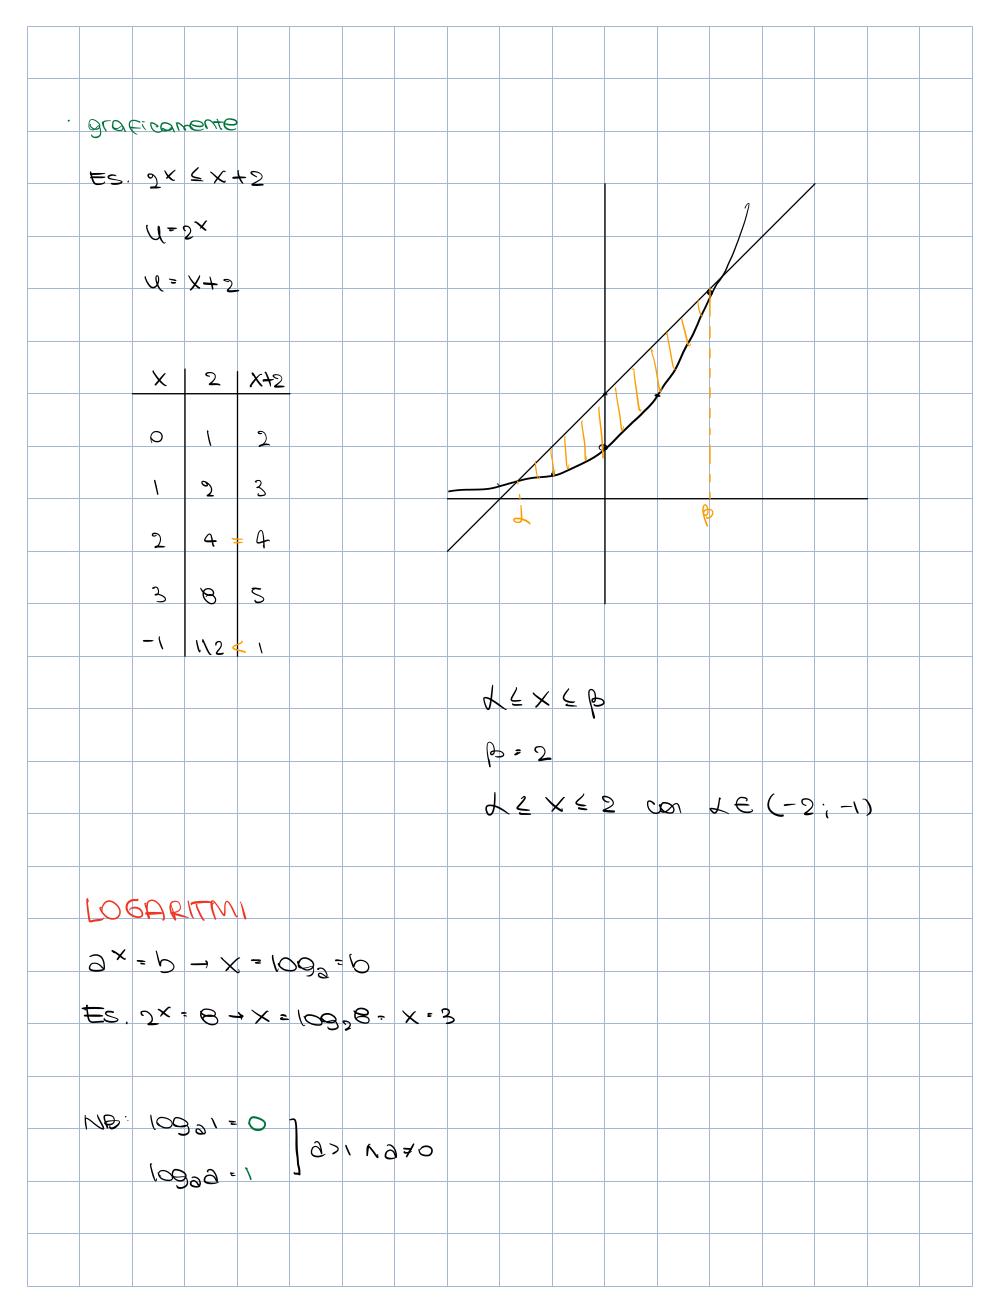 · graficamente
Es. 2^x ≤ x+2
y = 2^x
y = x+2
x 2 x+2
0 1 2
1 2 3
2 4 = 4
3 8 5
-1 1\2 < 1
α β
α ≤ x ≤ β
β = 2
α ≤ x ≤ 2 con α ∈ (-2; -1)
LOGARITMI
a^x = b → x = log_a = b
Es. 2^x = 8 → x = log_2 8 = x = 3
NB: log_a 1 = 0
log_a a = 1 ] a>1 ∧ a≠0